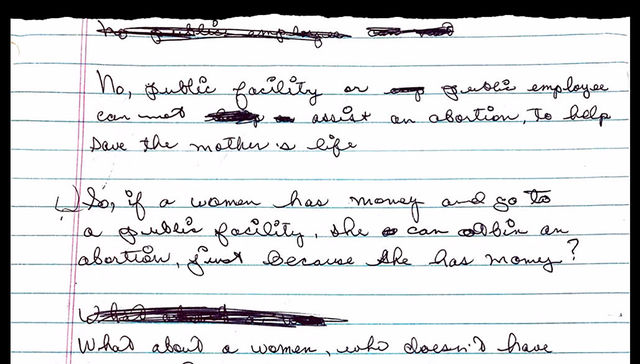 No public employee can not
No, public facility or public employee
can not assist an abortion, to help
save the mother's life
So, if a women has money and go to
a public facility, she can otbin an
abortion, just because she has money?
What about a women, who doesn't have